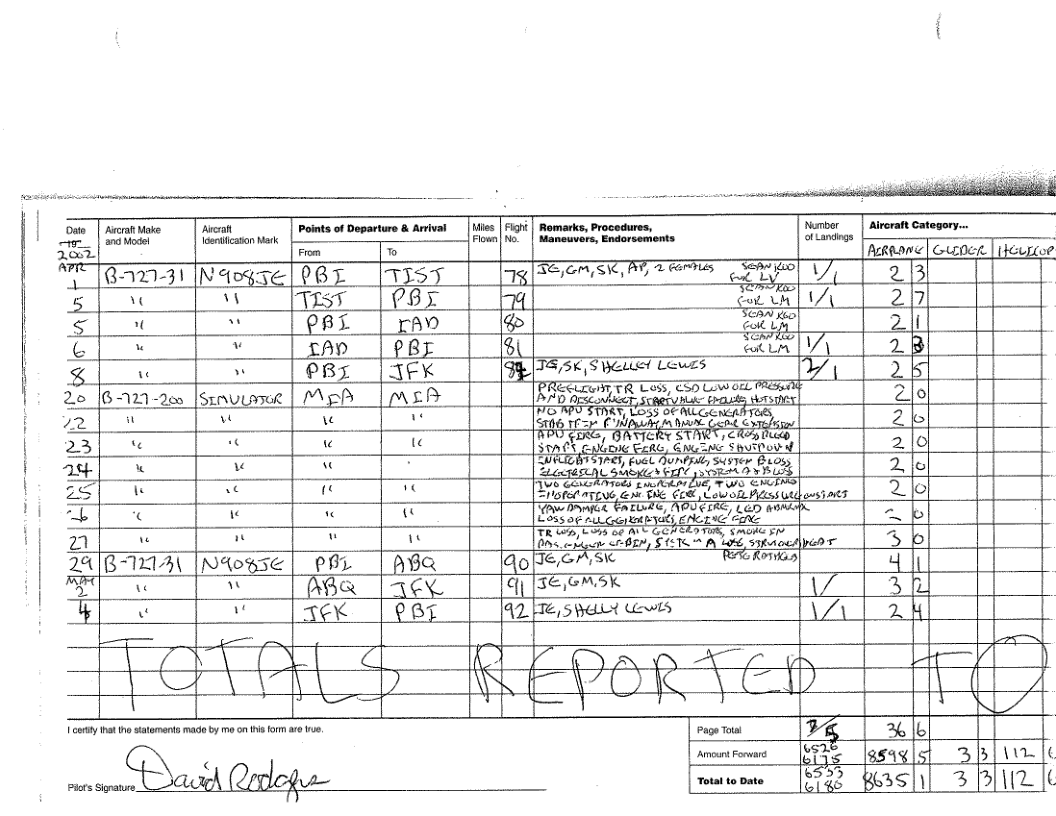 Date Aircraft Make and Model Aircraft Identification Mark Points of Departure & Arrival Miles Flown Flight No. Remarks, Procedures, Maneuvers, Endorsements Number of Landings Aircraft Category...
19 2002 From To AIRPLANE GLIDER HELICOP
APR 1 B-727-31 N908JE PBI TIST 78 JE, GM, SK, AP, 2 FEMALES FOR LV 1/1 2 3
5 " " TIST PBI 79 FOR LM 1/1 2 7
5 " " PBI IAD 80 FOR LM 2 1
6 " " IAD PBI 81 FOR LM 1/1 2
8 " " PBI JFK JE, SK, SHELLEY LEWIS 2/1 2 5
20 B-727-200 SIMULATOR MIA MIA PREFLIGHT, TR LOSS, CSD LOW OIL PRESSURE AND DISCONNECT, START VALVE FAILURE, HOT START 2 0
22 " " " " NO APU START, LOSS OF ALL GENERATORS, MANUAL GEAR EXTENSION 2 0
23 " " " " APU FIRE, BATTERY START, CROSSBLEED START, ENGINE FIRE, ENGINE SHUTDOWN 2 0
24 " " " INFLIGHT START, FUEL DUMPING, SYSTEM B LOSS, ELECTRICAL SMOKE & FIRE, SYSTEM A & B LOSS 2 0
25 " " " " TWO GENERATORS INOPERATIVE, TWO ENGINE INOPERATIVE, ENGINE FIRE, LOW OIL PRESSURE 2 0
" " " " YAW DAMPER FAILURE, APU FIRE, LOSS OF ALL GENERATORS, ENGINE FIRE 2 0
27 " " " " TR LOSS, LOSS OF ALL GENERATORS, SMOKE IN 3 0
29 B-727-31 N908JE PBI ABQ 90 JE, GM, SK 4 1
MAY 2 " " ABQ JFK 91 JE, GM, SK 1/ 3 2
4 " " JFK PBI 92 JE, SHELLY LEWIS 1/1 2 4
TOTALS REPORTED TO
I certify that the statements made by me on this form are true. Page Total 7/5 36 6
Amount Forward 6526 6175 8598 5 3 3 112
Pilot's Signature David Rodgers Total to Date 6533 6180 8635 1 3 3 112